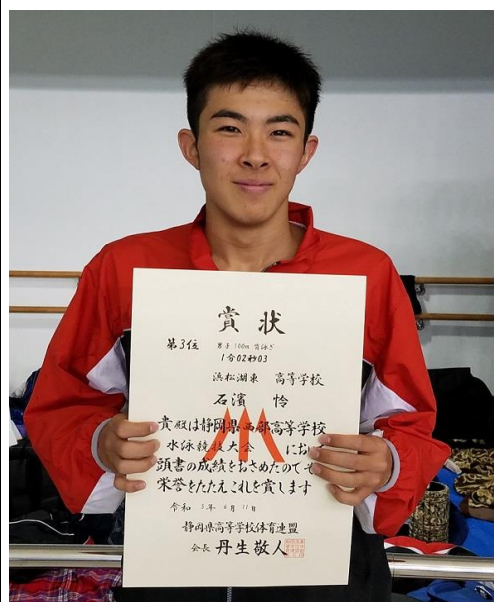 賞状
第3位 男子 100m 背泳ぎ
1分02秒03
浜松湖東 高等学校
石濱 怜
貴殿は静岡県西部高等学校
水泳競技大会 にお
頭書の成績をおさめたのでそ
栄誉をたたえこれを賞します
令和 3年 6月 11日
静岡県高等学校体育連盟
会長 丹生敬人